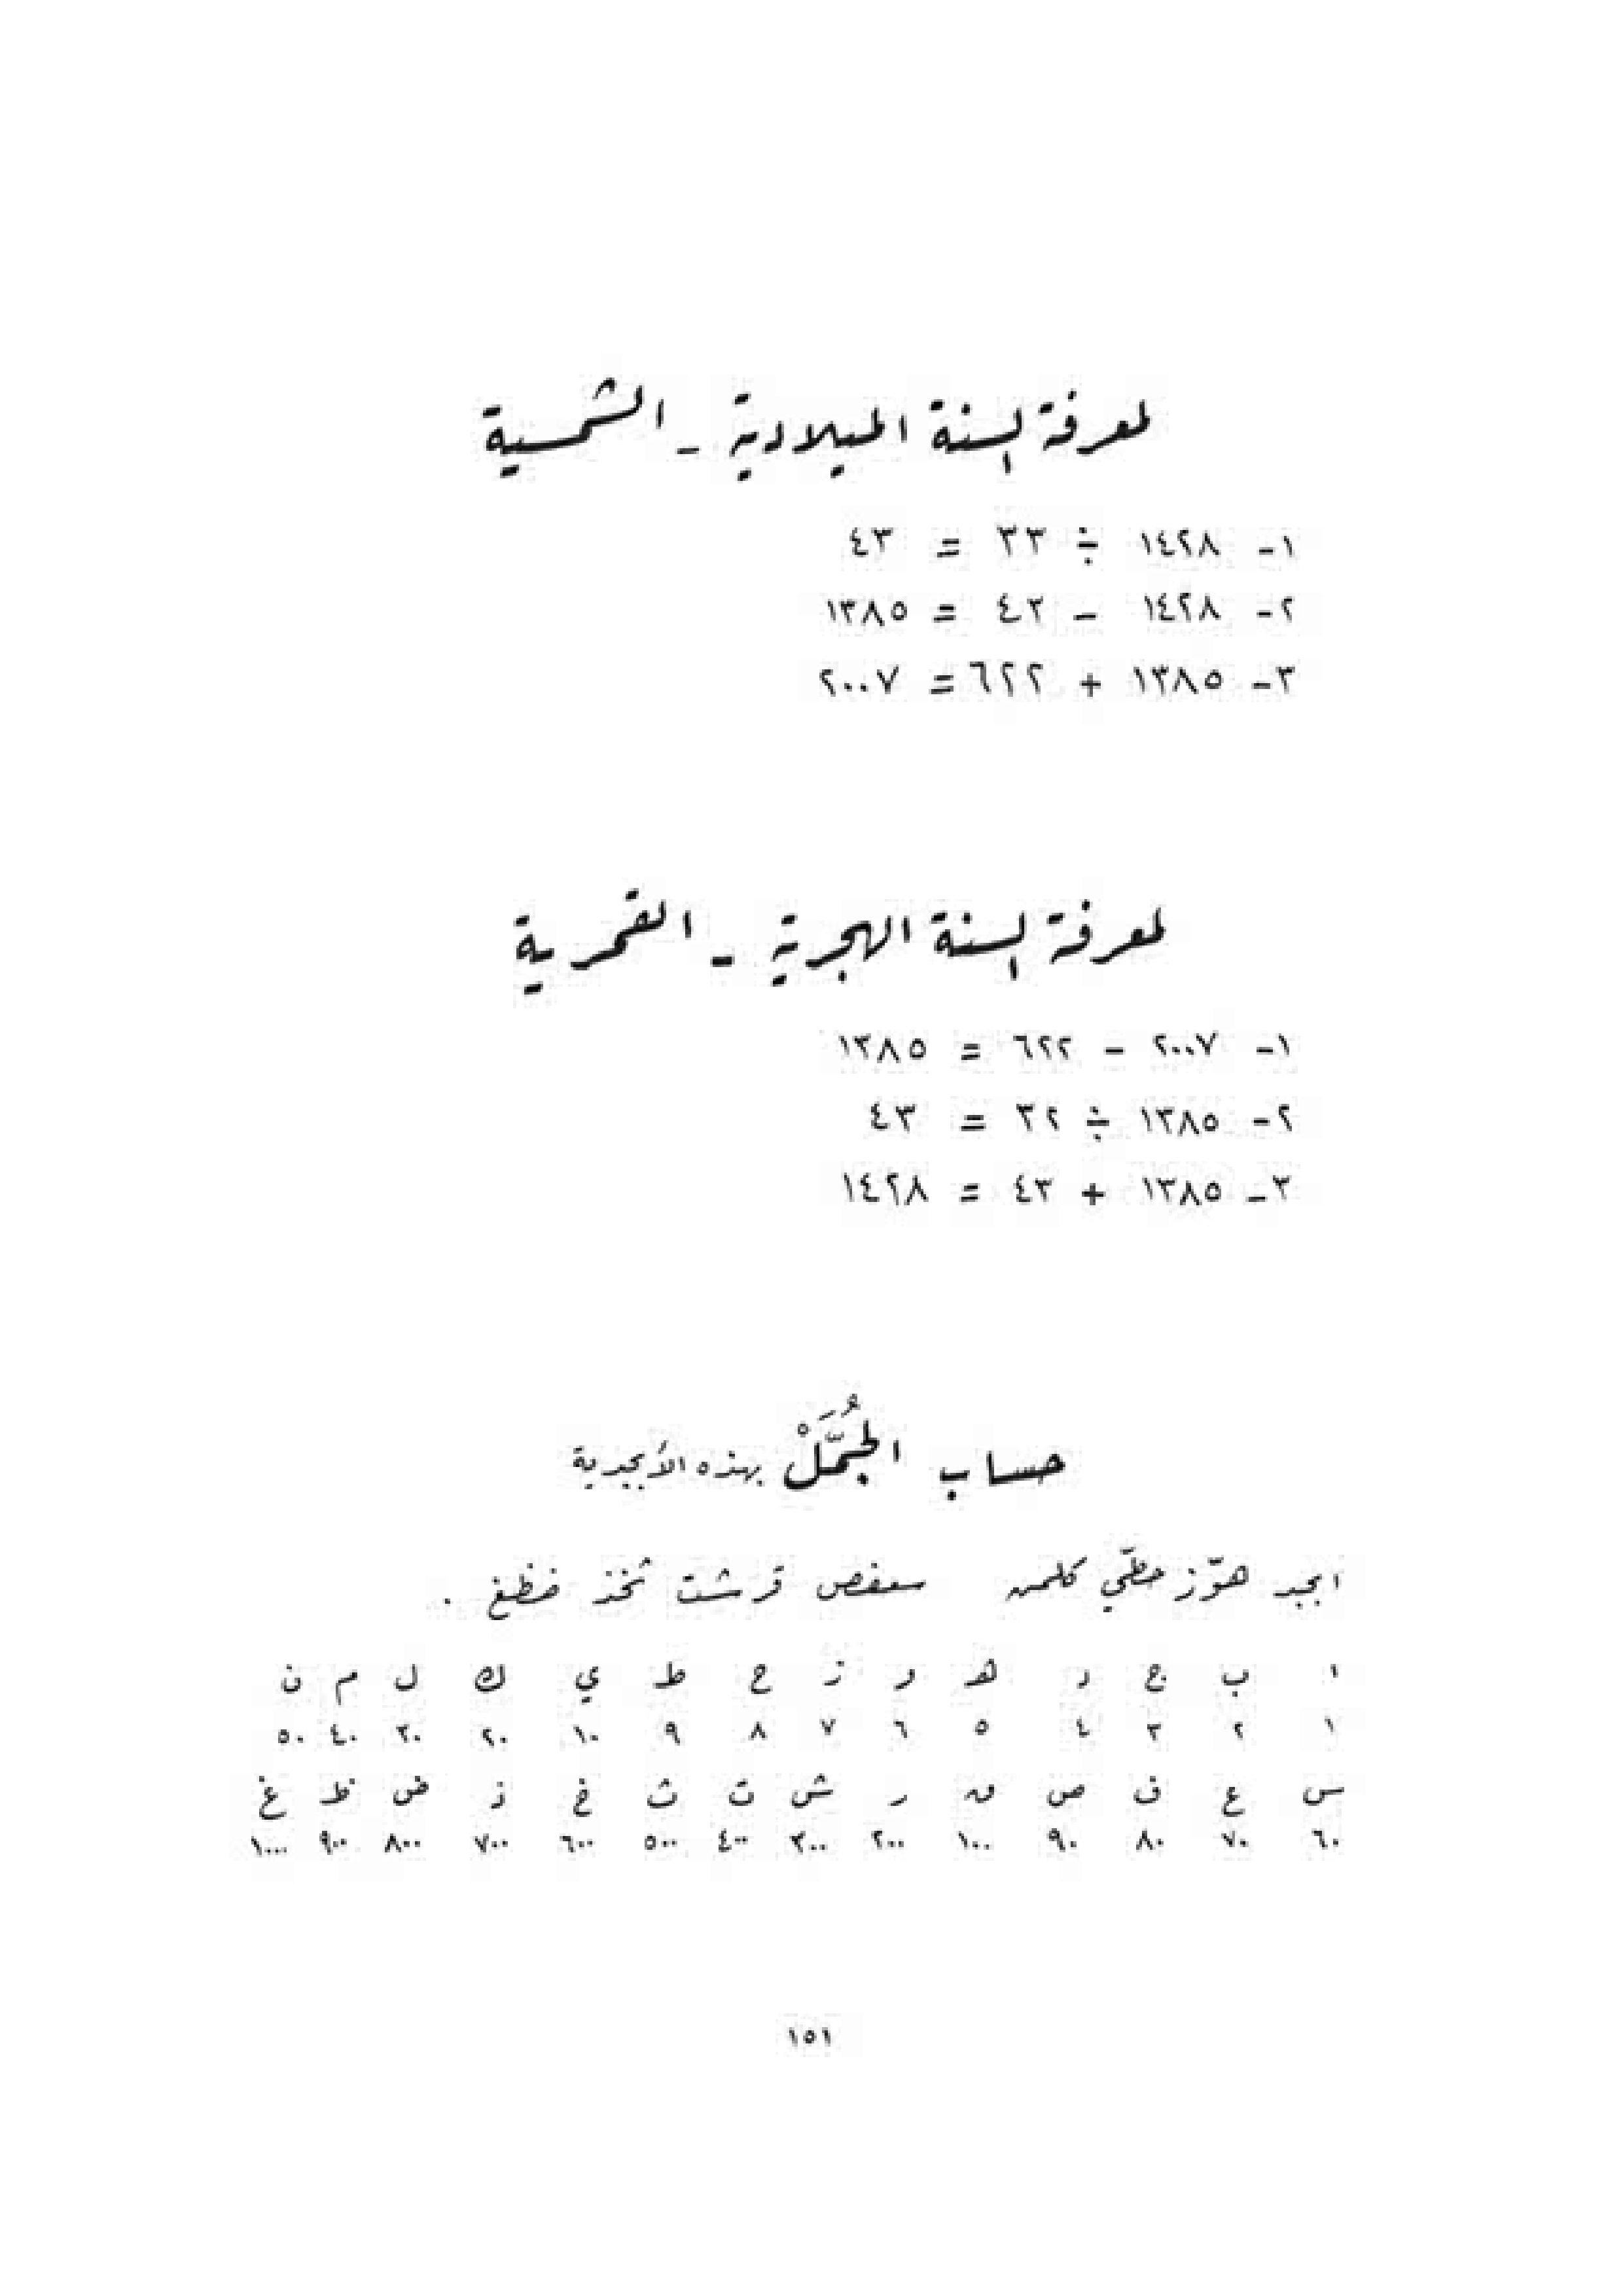 لمعرفة السنة الميلادية - الشمسية
١- ١٤٢٨ ÷ ٣٣ = ٤٣
٢- ١٤٢٨ - ٤٣ = ١٣٨٥
٣- ١٣٨٥ + ٦٢٢ = ٢٠٠٧
لمعرفة السنة الهجرية - القمرية
١- ٢٠٠٧ - ٦٢٢ = ١٣٨٥
٢- ١٣٨٥ ÷ ٣٢ = ٤٣
٣- ١٣٨٥ + ٤٣ = ١٤٢٨
حساب الجُمَّلْ بهذه الأبجدية
ابجد هوّز حطّي كلمن سعفص قرشت ثخذ ضظغ .
ا ب ج د هـ و ز ح ط ي ك ل م ن
١ ٢ ٣ ٤ ٥ ٦ ٧ ٨ ٩ ١٠ ٢٠ ٣٠ ٤٠ ٥٠
س ع ف ص ق ر ش ت ث خ ذ ض ظ غ
٦٠ ٧٠ ٨٠ ٩٠ ١٠٠ ٢٠٠ ٣٠٠ ٤٠٠ ٥٠٠ ٦٠٠ ٧٠٠ ٨٠٠ ٩٠٠ ١٠٠٠
١٥١